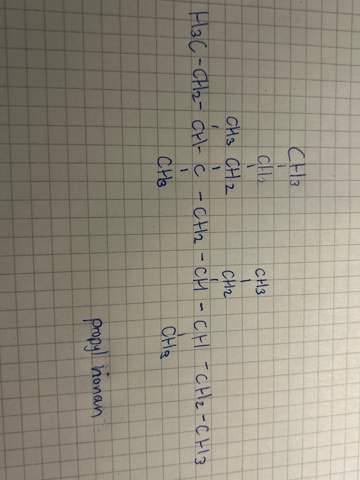 CH3
CH2 CH3
CH3 CH2 CH2
H3C-CH2-CH-C-CH2-CH-CH-CH2-CH3
CH3 CH3
propyl nonan